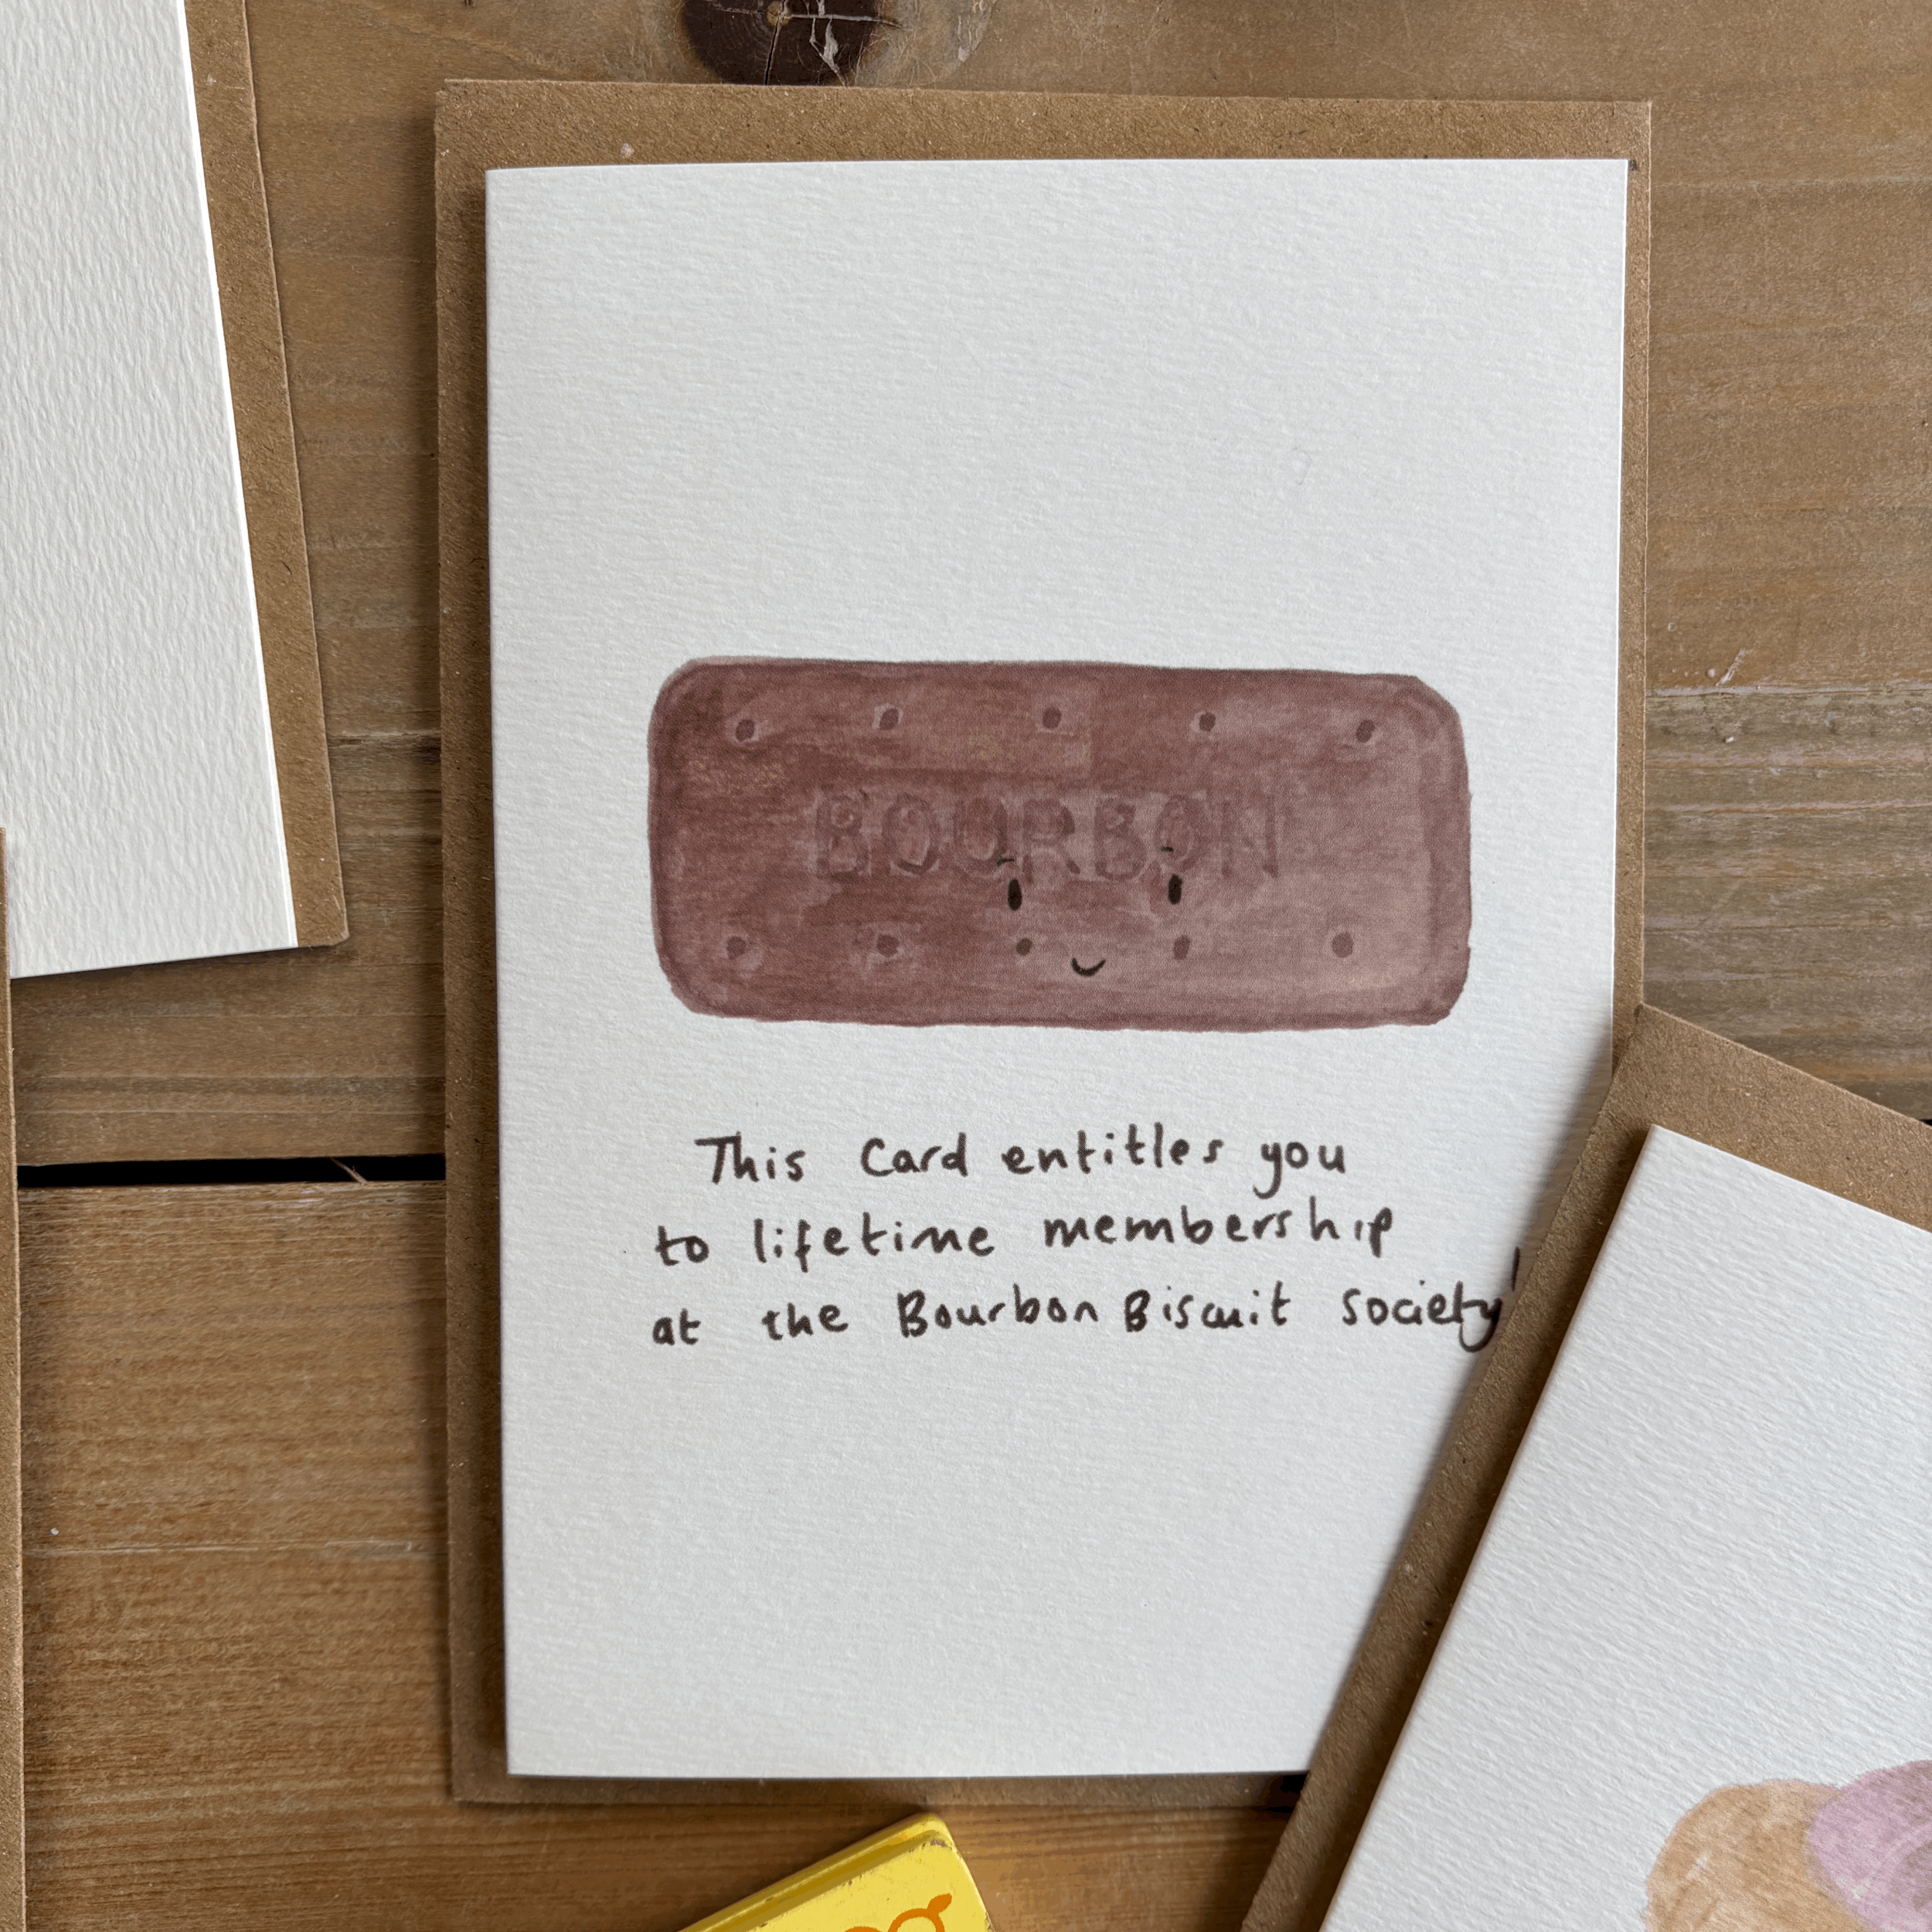 BOURBON
This Card entitles you
to lifetime membership
at the Bourbon Biscuit society!